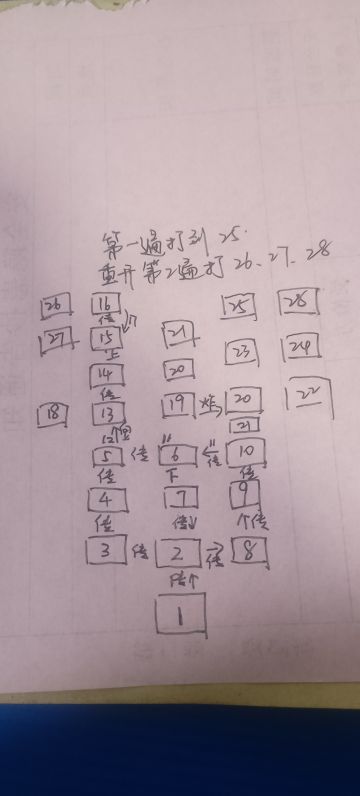 第一遍打到25.
重开第2遍打26、27、28
26 16 25 28
传
27 15 21 23 24
上
14 20
传
18 13 19 20 22
21
12 传 11 11
5 传 6 传 10
传 下 传
4 7 9
传 传↓ ↑传
3 传 2 传 8
传↑
1